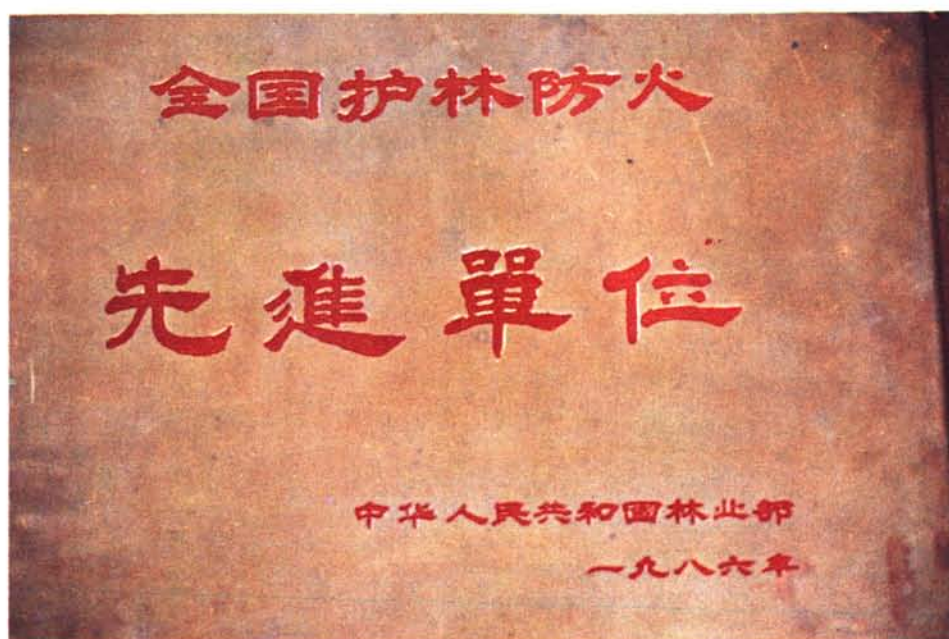 全国护林防火
先進單位
中华人民共和国林业部
一九八六年